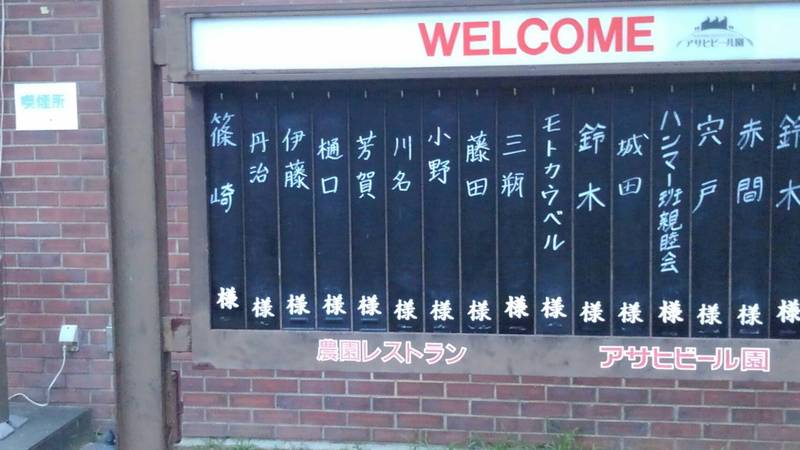 WELCOME
アサヒビール園
喫煙所
鈴木 様
赤間 様
宍戸 様
ハンマー班親睦会 様
城田 様
鈴木 様
モトカウベル 様
三瓶 様
藤田 様
小野 様
川名 様
芳賀 様
樋口 様
伊藤 様
丹治 様
篠崎 様
農園レストラン
アサヒビール園